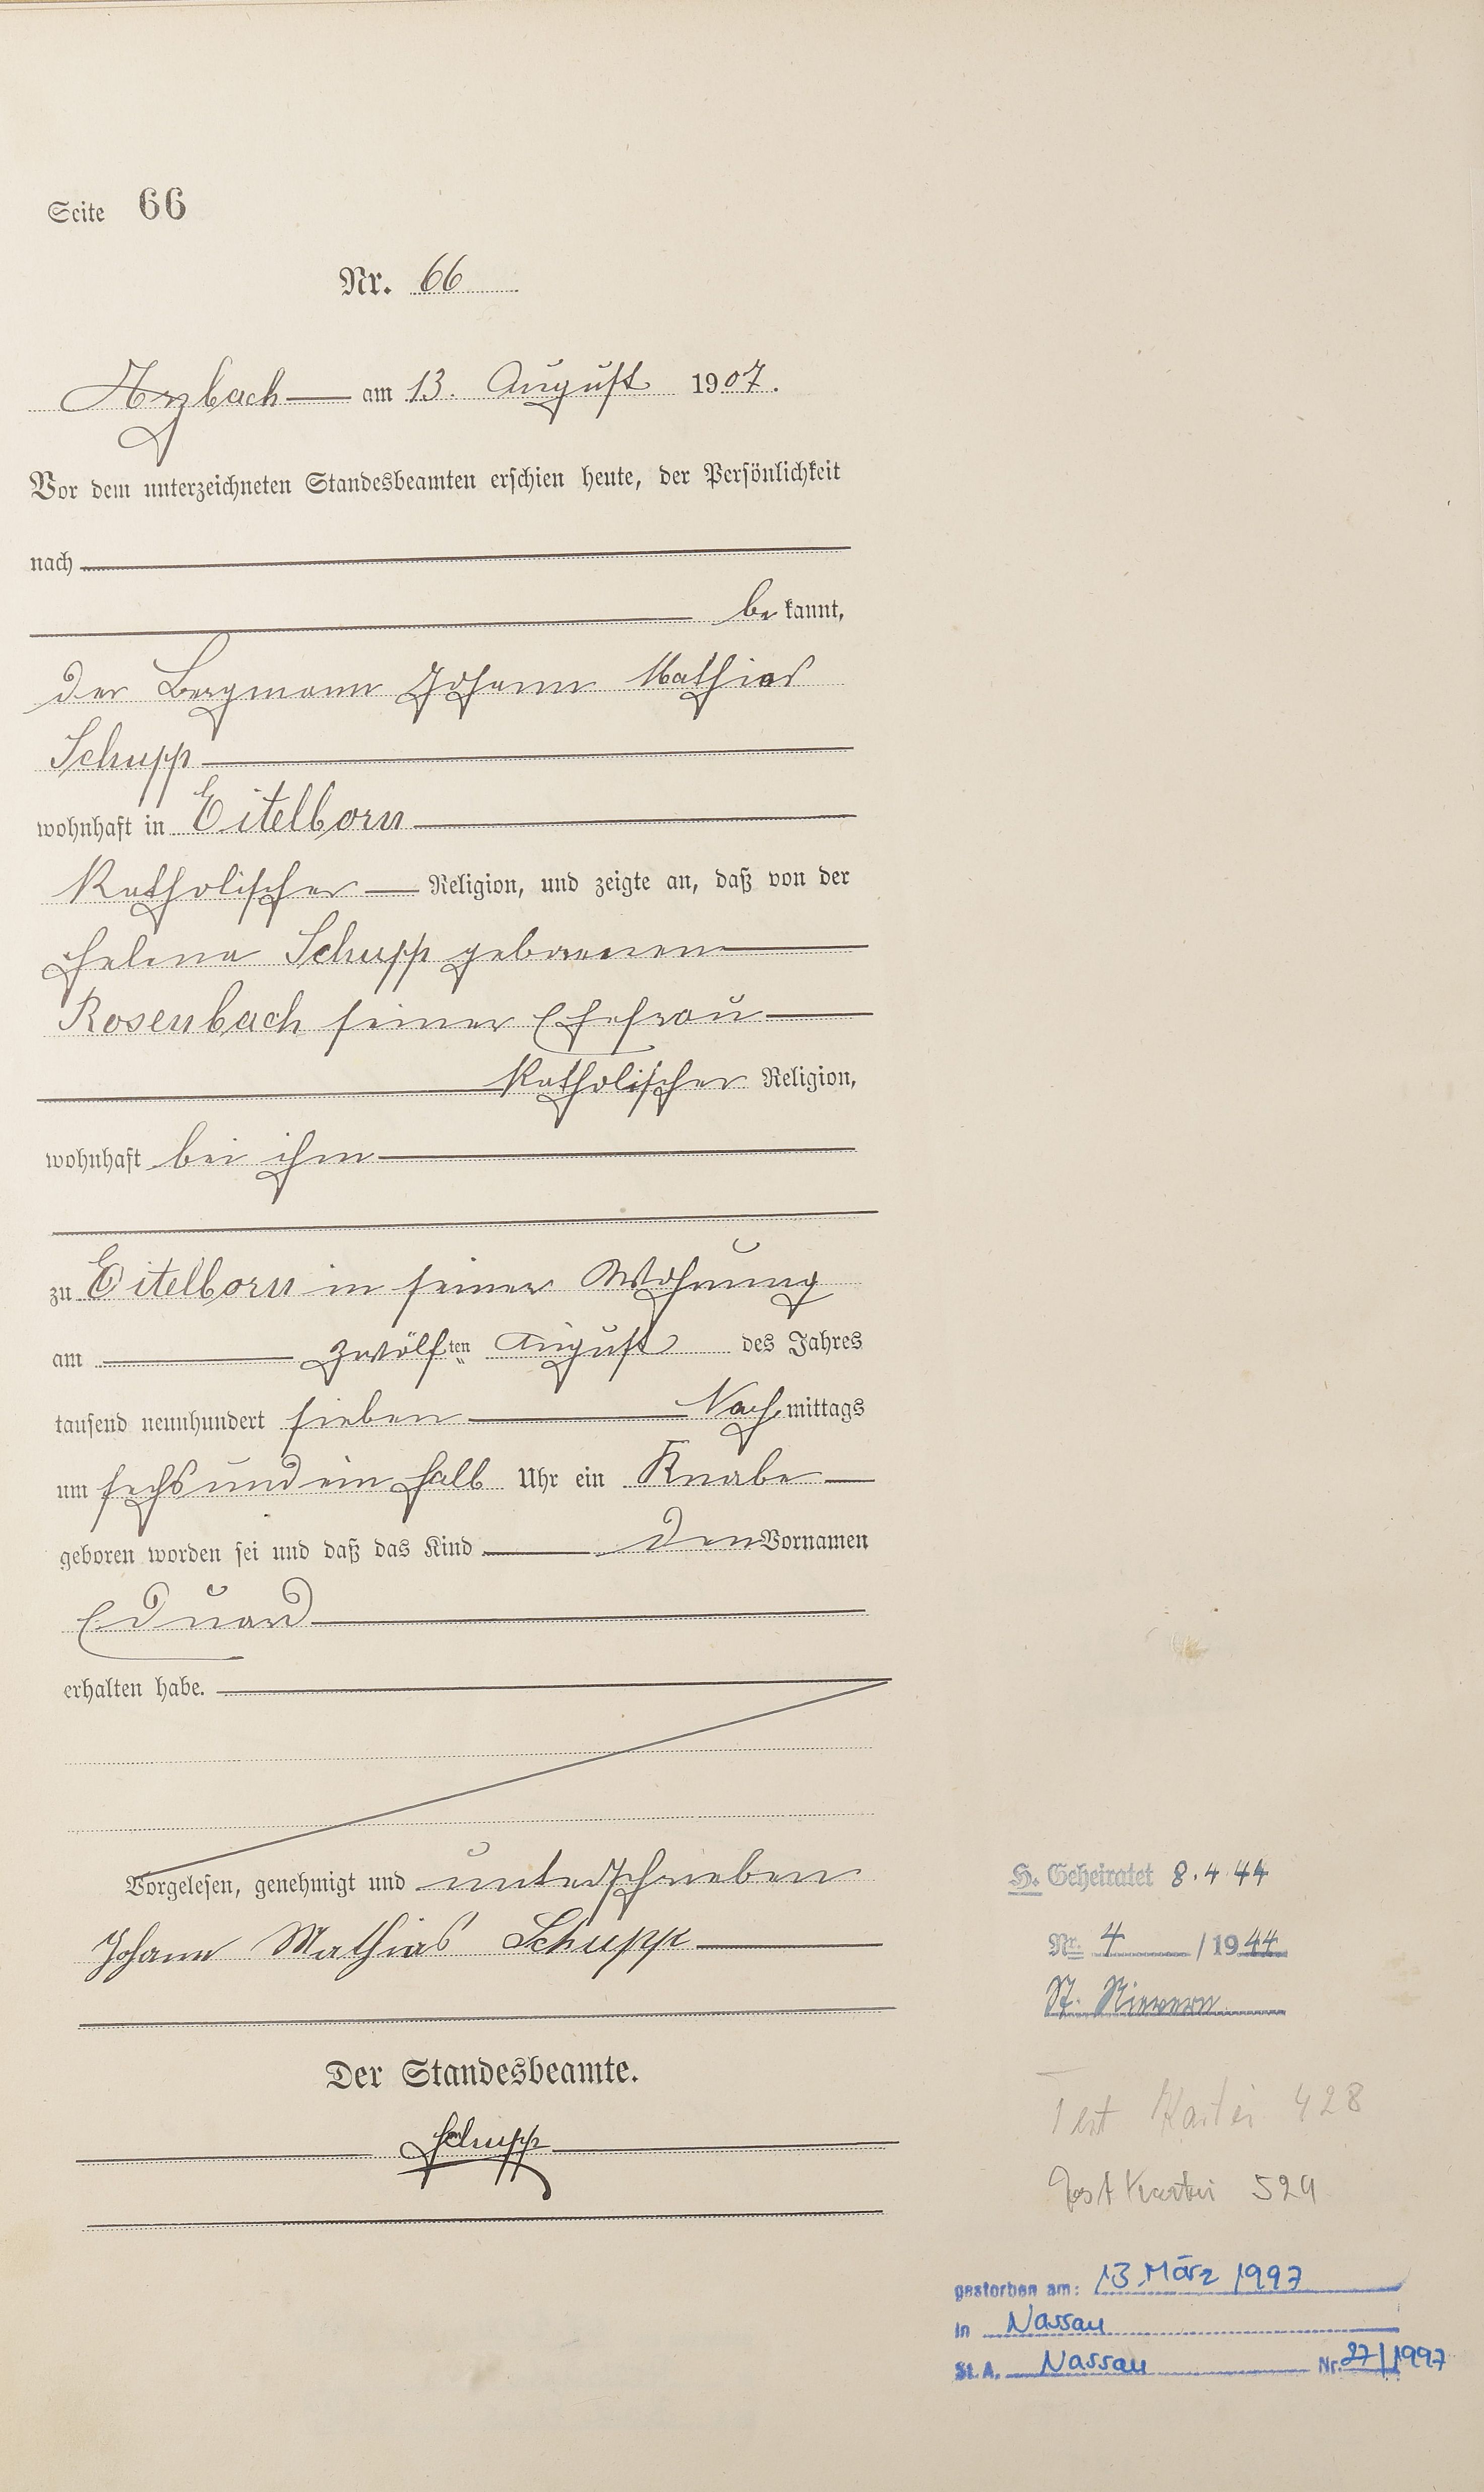 Seite 66
Nr. 66
Arzbach am 13. August 1907.
Vor dem unterzeichneten Standesbeamten erschien heute, der Persönlichkeit
nach
bekannt,
der Bergmann Johann Mathias
Schupp
wohnhaft in Eitelborn
Katholischer Religion, und zeigte an, daß von der
Helena Schupp geborenen
Rosenbach seiner Ehefrau
Katholischer Religion,
wohnhaft bei ihm
zu Eitelborn in seiner Wohnung
am zwölften August des Jahres
tausend neunhundert sieben Nachmittags
um sechs und ein halb Uhr ein Knabe
geboren worden sei und daß das Kind den Vornamen
Eduard
erhalten habe.
Vorgelesen, genehmigt und unterschrieben
Johann Mathias Schupp
Der Standesbeamte.
Schupp
H. Geheiratet 8.4.44
Nr. 4 /1944
St. Nievern
Kartei 428
Kartei 529
gestorben am: 13. März 1997
in Nassau
St. A. Nassau Nr. 27/1997